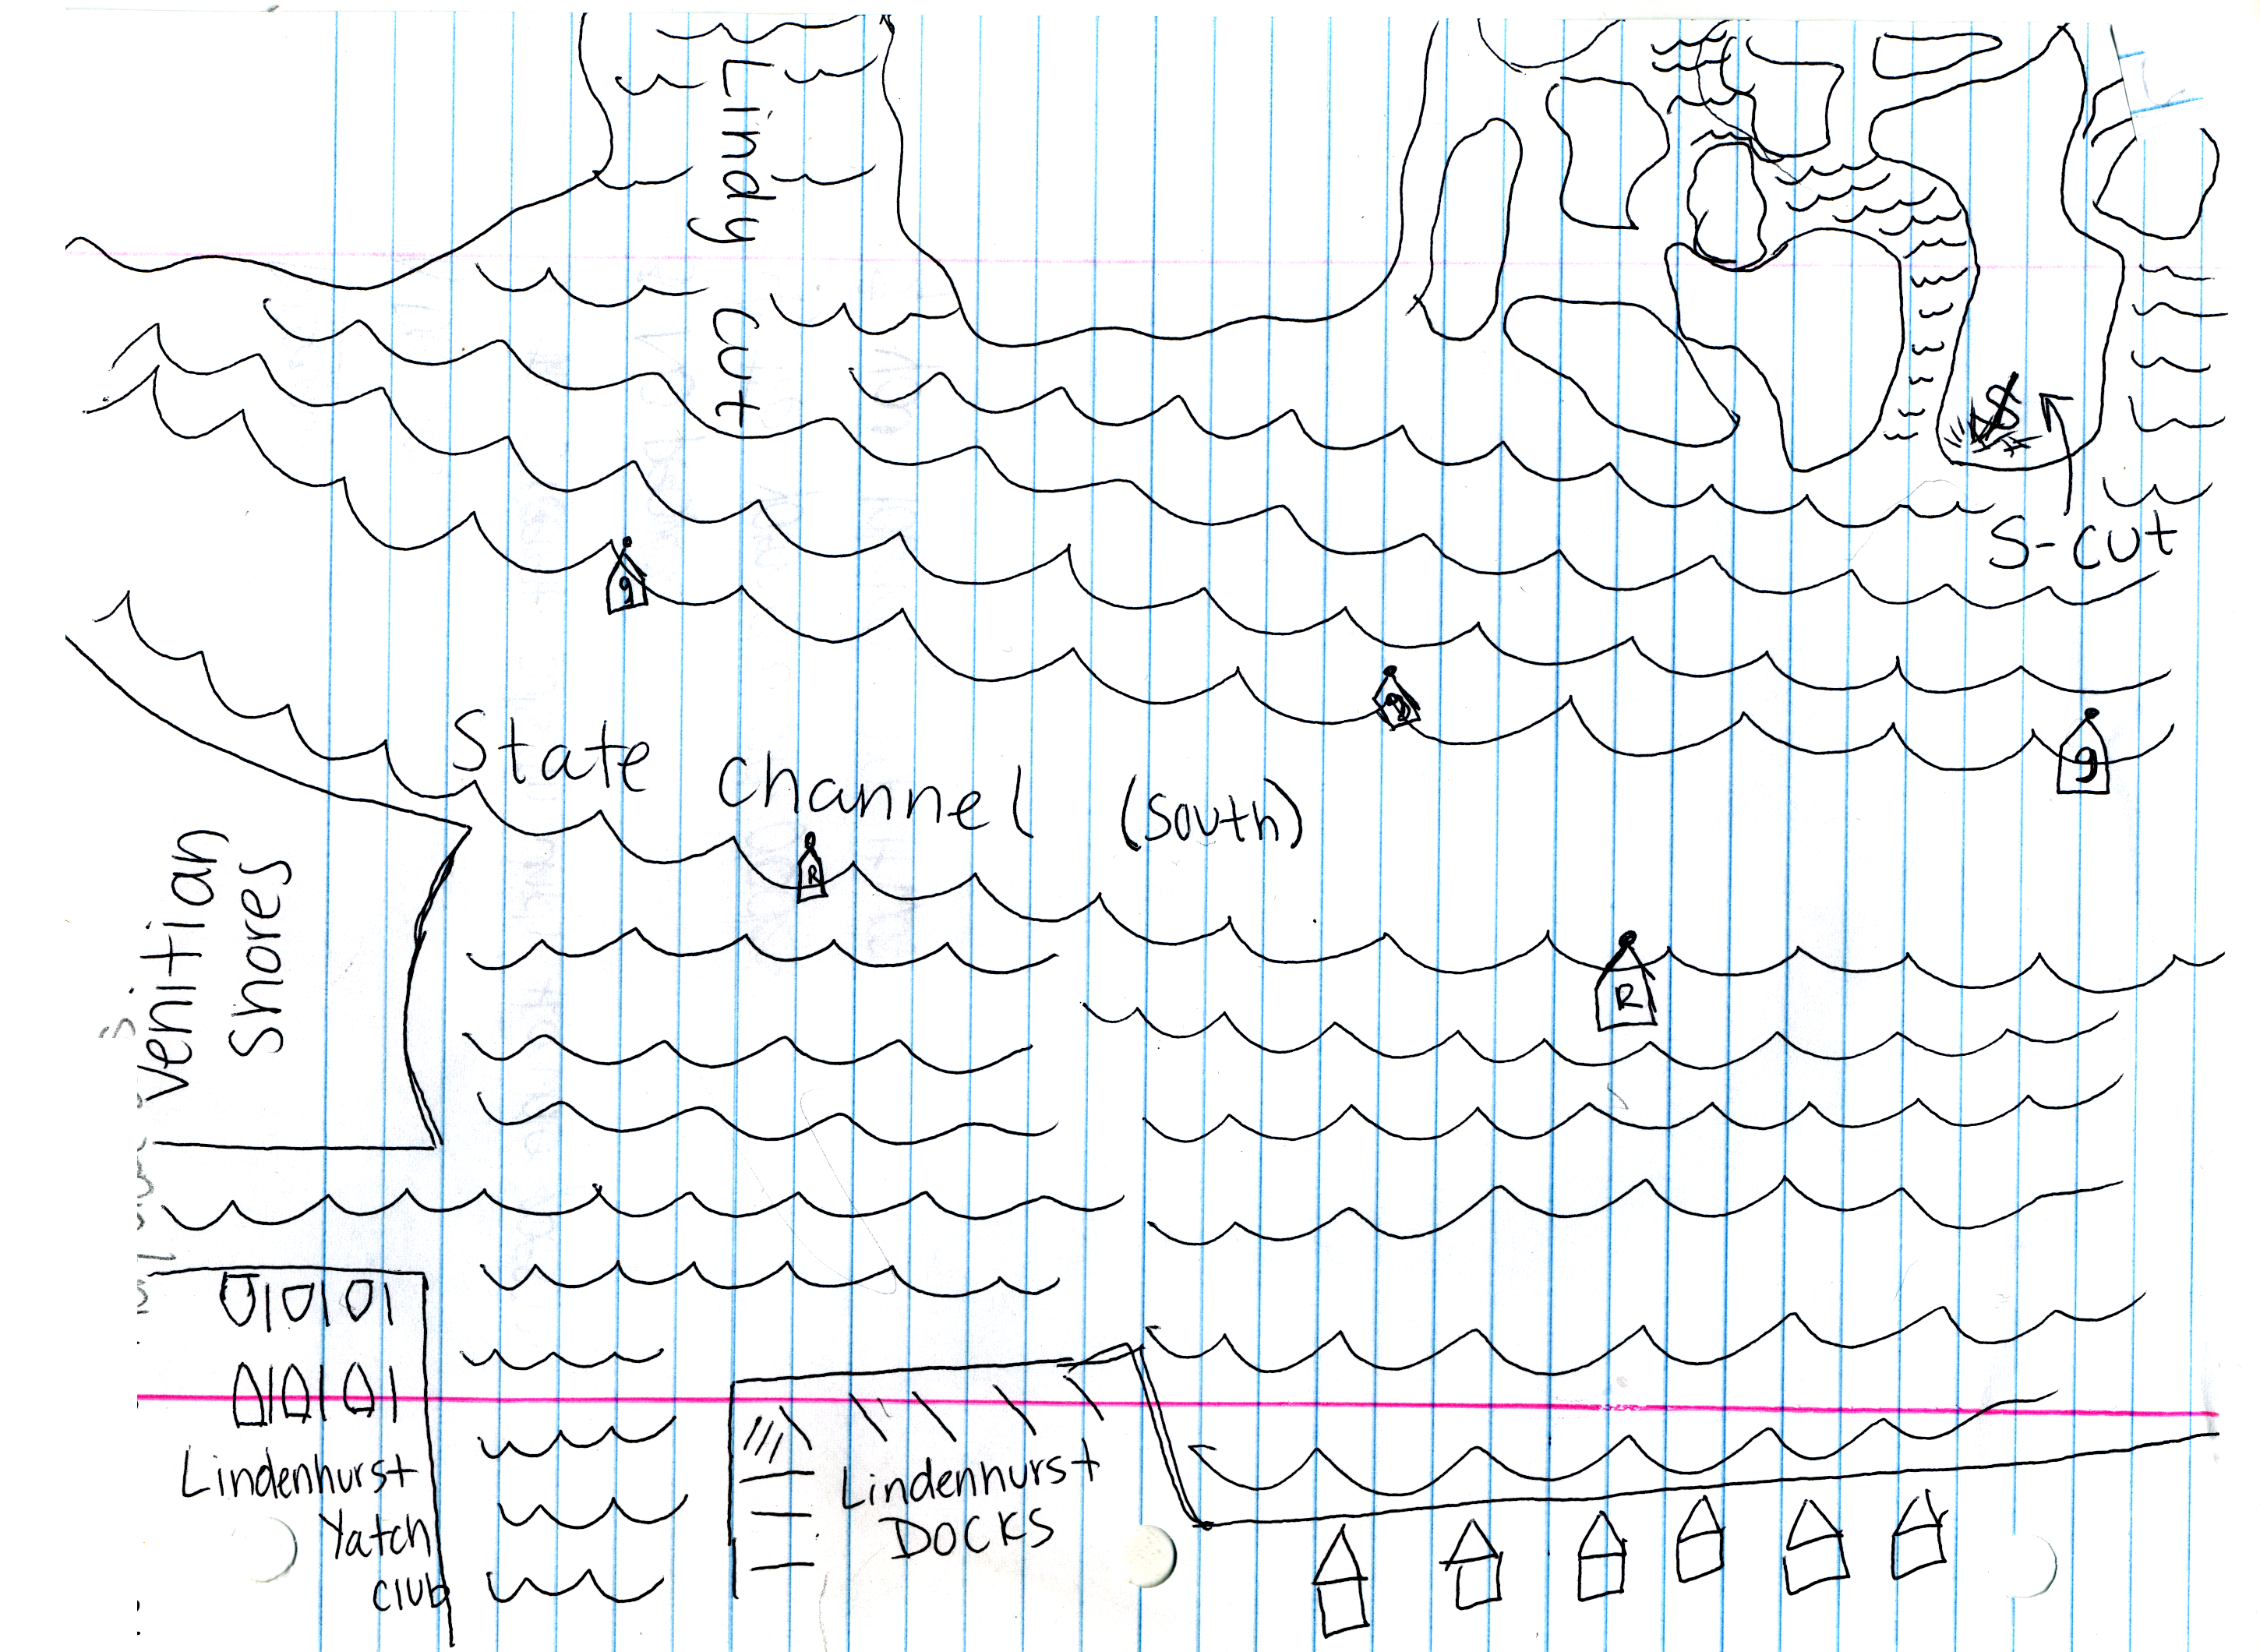 Lindy Cut
S-cut
g
g
g
State Channel (South)
R
R
Venitian
Shores
Lindenhurst
Yatch
club
Lindenhurst
DOCKS